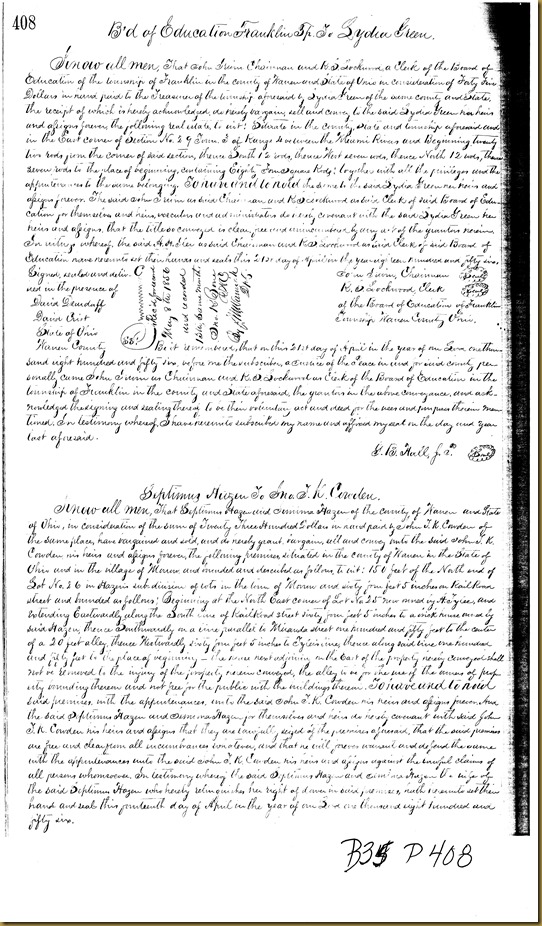 408
B'd of Education Franklin Tp. To Lydia Green.
Know all men, That John Irwin Chairman and R. S. Lockwood, a Clerk of the Board of
Education of the township of Franklin in the county of Warren and State of Ohio in consideration of Forty Five
Dollars in hand paid to the Treasurer of the township aforesaid by Lydia Green of the same county and State,
the receipt of which is hereby acknowledged, do hereby bargain, sell and convey to the said Lydia Green her heirs
and assigns forever, the following real estate to wit: Situate in the county, state and township aforesaid and
in the East corner of Section No. 29 Town. 2 of Range 5 between the Miami Rivers and Beginning twenty
two rods from the corner of said section, thence South 12 rods, thence West seven rods, thence North 12 rods, thence
seven rods to the place of beginning, containing Eighty Four square Rods; together with all the privileges and the
appurtenances to the same belonging. To have and to hold the same to the said Lydia Green her heirs and
assigns forever. The said John Irwin as said Chairman and R. S. Lockwood as said Clerk of said Board of Edu-
cation for themselves and heirs, executors and administrators do hereby covenant with the said Lydia Green her
heirs and assigns, that the title so conveyed is clear, free and unincumbered by any act of the grantors herein.
In witness whereof, the said as said Chairman and R. S. Lockwood as said Clerk of said Board of
Education have hereunto set their hands and seals this 21st day of April in the year eighteen hundred and fifty six.
Signed, sealed and deliv-
ered in the presence of
David Deardoff
David Crist
State of Ohio
Warren County
Received
May 8th 1856
and recorded
same month
John Irwin, Chairman
R. S. Lockwood Clerk
of the Board of Education of Franklin
Township Warren County Ohio.
Be it remembered, that on this 21st day of April in the year of our Lord one thou-
sand eight hundred and fifty six, before me the subscriber, a Justice of the Peace in and for said county per-
sonally came John Irwin as Chairman and R. S. Lockwood as Clerk of the Board of Education in the
township of Franklin in the county and State aforesaid, the grantors in the above conveyance, and ack-
nowledged the signing and sealing thereof to be their voluntary act and deed for the uses and purposes therein men-
tioned. In testimony whereof, I have hereunto subscribed my name and affixed my seal on the day and year
last aforesaid.
G. B. Hall, J. P. Seal
Septimus Hazen To Jno. T. K. Cowden.
Know all men, That Septimus Hazen and Jemima Hazen of the county of Warren and State
of Ohio, in consideration of the sum of Twenty Three Hundred Dollars in hand paid by John T. K. Cowden of
the same place, have bargained and sold, and do hereby grant, bargain, sell and convey unto the said John T. K.
Cowden his heirs and assigns forever, the following premises situated in the county of Warren in the State of
Ohio and in the village of Morrow and bounded and described as follows, to wit: 150 feet of the North end of
Lot No. 26 in Hazen's subdivision of lots in the town of Morrow and sixty four feet 5 inches on Railroad
street and bounded as follows; Beginning at the North East corner of Lot No. 25 now owned by and
extending Eastwardly along the South line of Railroad Street sixty four feet 5 inches to a house owned by
said Hazen, thence Southwardly on a line parallel to Miranda street one hundred and fifty feet to the center
of a 20 feet alley, thence Westwardly sixty four feet 5 inches to line, thence along said line, one hundred
and fifty feet to the place of beginning — the house next adjoining on the East of the property hereby conveyed shall
not be removed to the injury of the property herein conveyed, the alley is for the use of the owners of prop-
erty bounding thereon and not free for the public with the buildings thereon. To have and to hold
said premises, with the appurtenances, unto the said John T. K. Cowden his heirs and assigns forever. And
the said Septimus Hazen and Jemima Hazen for themselves and heirs do hereby covenant with said John
T. K. Cowden his heirs and assigns that they are lawfully seized of the premises aforesaid, that the said premises
are free and clear from all incumbrances whatever, and that he will forever warrant and defend the same
with the appurtenances unto the said John T. K. Cowden his heirs and assigns against the lawful claims of
all persons whomsoever. In testimony whereof the said Septimus Hazen and Jemima Hazen the wife of
the said Septimus Hazen who hereby relinquishes her right of dower in said premises, hath hereunto set their
hand and seals this fourteenth day of April in the year of our Lord one thousand eight hundred and
fifty six.
B35 P 408